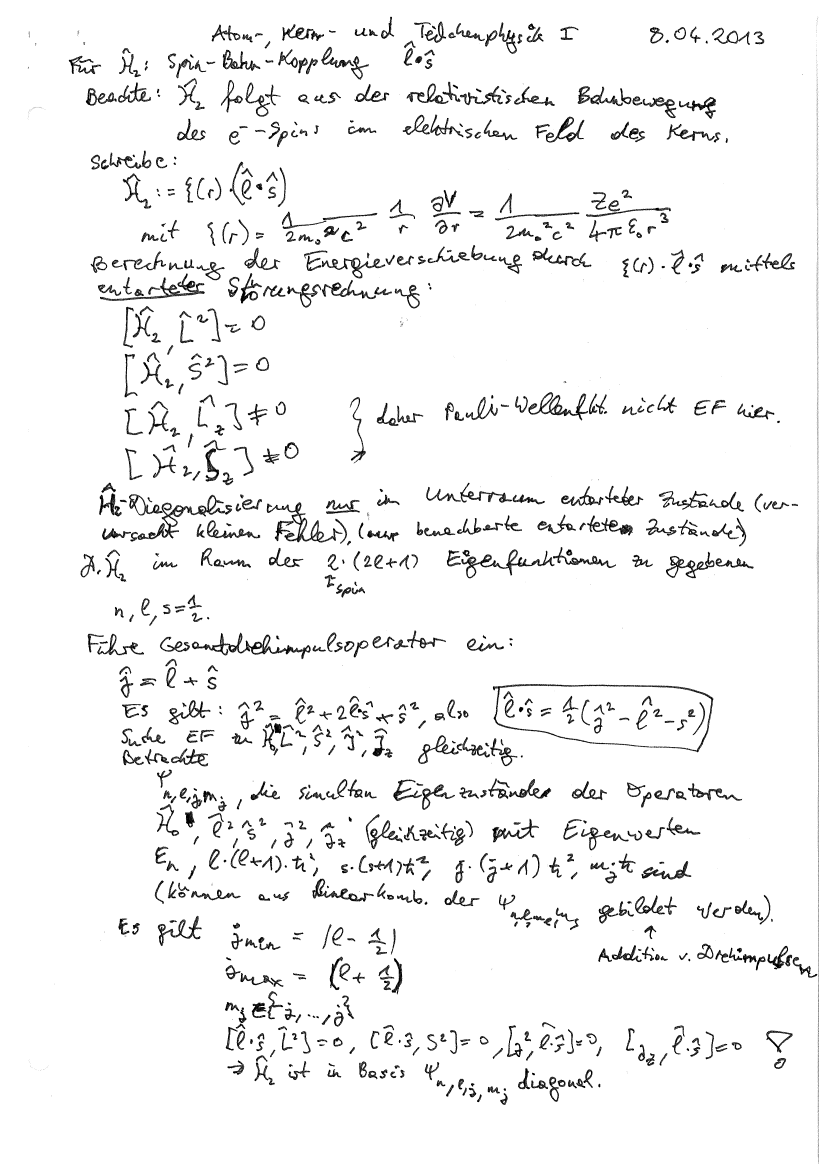 Atom-, Kern- und Teilchenphysik I 8.04.2013
Für Ĥ₂: Spin-Bahn-Kopplung l̂•ŝ
Beachte: Ĥ₂ folgt aus der relativistischen Bahnbewegung
des e⁻-Spins im elektrischen Feld des Kerns.
Schreibe:
Ĥ₂ := ξ(r)·(l̂•ŝ)
mit ξ(r) = 1/(2m₀²c²) 1/r ∂V/∂r = 1/(2m₀²c²) Ze²/(4πε₀r³)
Berechnung der Energieverschiebung durch ξ(r)·l̂•ŝ mittels
entarteter Störungsrechnung:
[Ĥ₂, L̂²] = 0
[Ĥ₂, Ŝ²] = 0
[Ĥ₂, L̂_z] ≠ 0 } daher Pauli-Wellenfkt. nicht EF hier.
[Ĥ₂, Ŝ_z] ≠ 0
Ĥ₂-Diagonalisierung nur im Unterraum entarteter Zustände (ver-
ursacht kleinen Fehler), (nur benachbarte entartete Zustände)
Ĥ₂ im Raum der 2·(2l+1) Eigenfunktionen zu gegebenen
↑Spin
n, l, s=1/2.
Führe Gesamtdrehimpulsoperator ein:
ĵ = l̂ + ŝ
Es gilt: ĵ² = l̂² + 2l̂•ŝ + ŝ², also l̂•ŝ = 1/2 (ĵ² - l̂² - s²)
Suche EF zu Ĥ₀, L̂², ŝ², ĵ², ĵ_z gleichzeitig.
Betrachte
Ψ_n,l,j,m_j, die simultan Eigenzustände der Operatoren
Ĥ₀, l̂², ŝ², ĵ², ĵ_z (gleichzeitig) mit Eigenwerten
E_n, l·(l+1)·ħ², s·(s+1)ħ², j·(j+1)ħ², m_jħ sind
(können aus Linearkomb. der Ψ_n,l,m_l,m_s gebildet werden).
↑
Addition v. Drehimpulsen
Es gilt j_min = |l - 1/2|
j_max = (l + 1/2)
m_j ∈ {-j, ..., j}
[l̂•ŝ, L̂²] = 0, [l̂•ŝ, S²] = 0, [ĵ², l̂•ŝ] = 0, [j_z, l̂•ŝ] = 0 !
→ Ĥ₂ ist in Basis Ψ_n,l,j,m_j diagonal.